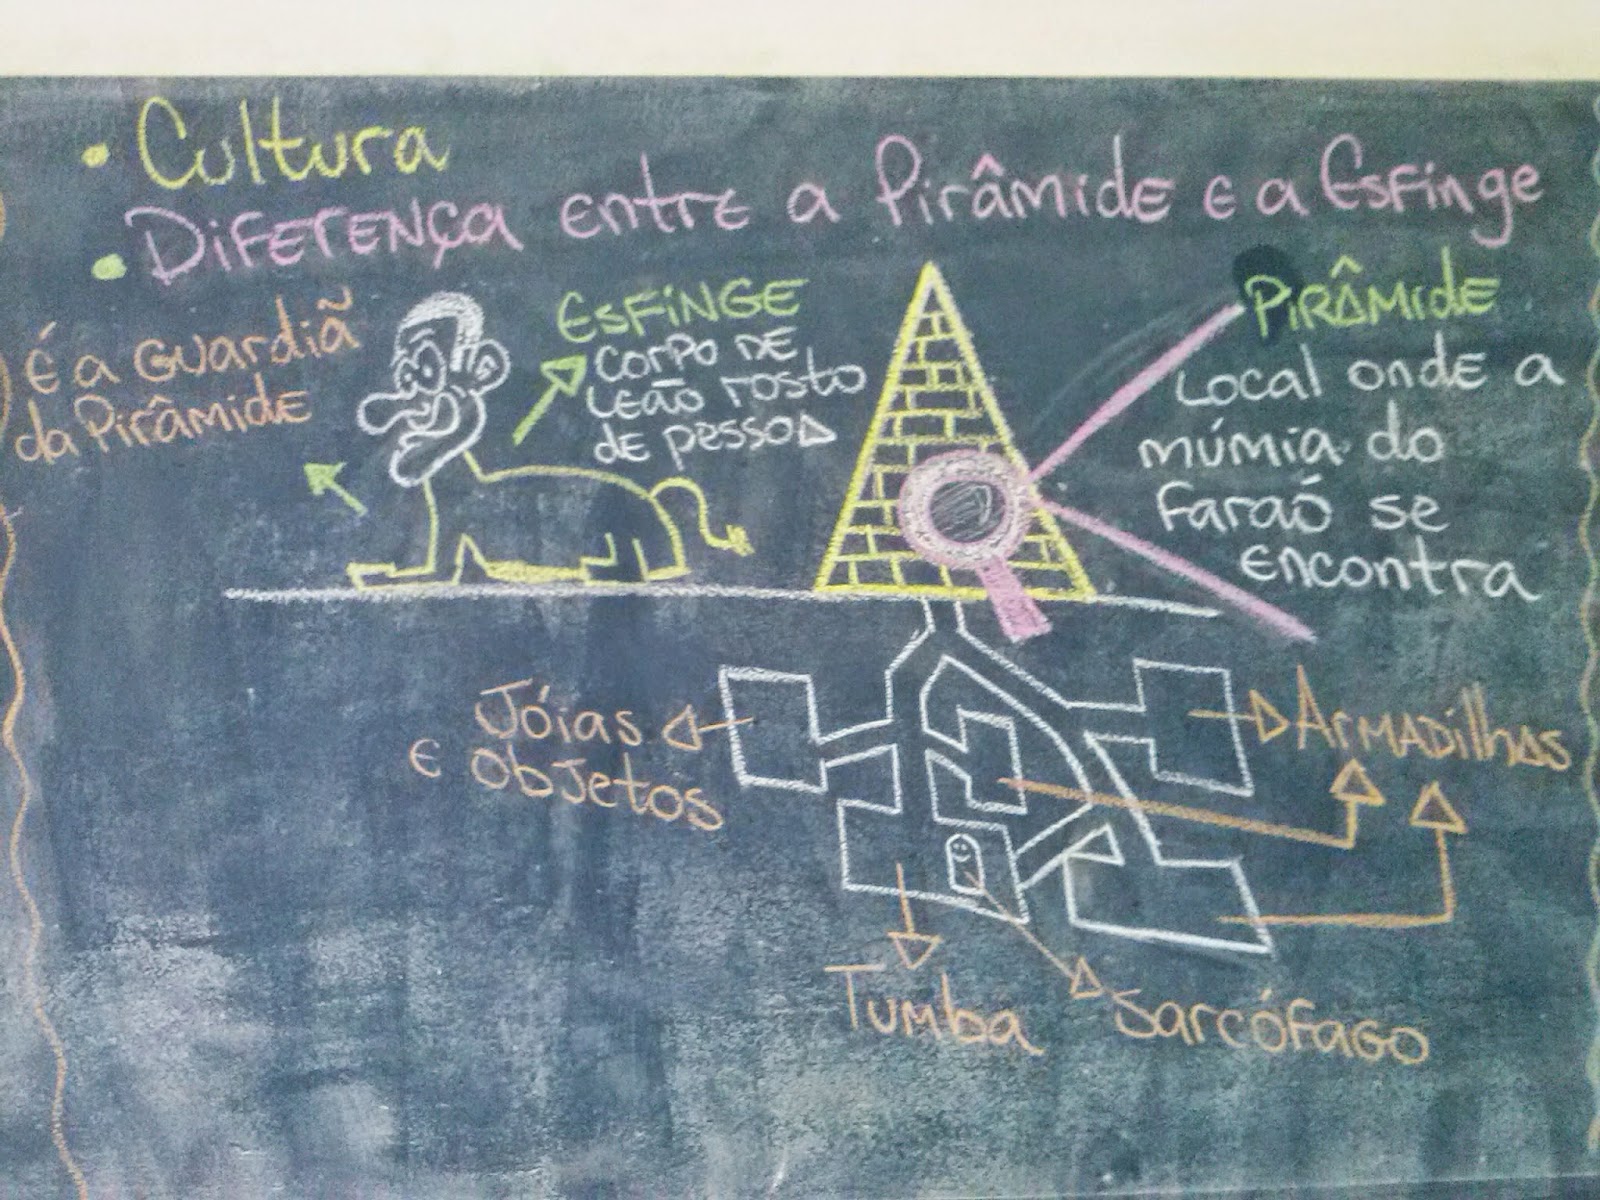 • Cultura
• Diferença entre a Pirâmide e a Esfinge
É a Guardiã
da Pirâmide
Esfinge
corpo de
leão rosto
de pessoa
Pirâmide
Local onde a
múmia do
faraó se
encontra
Jóias
e objetos
Armadilhas
Tumba
Sarcófago